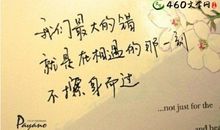 460文学网
我们最大的错
就是在相遇的那一刻
不擦身而过
...not just for the
Payano
and be